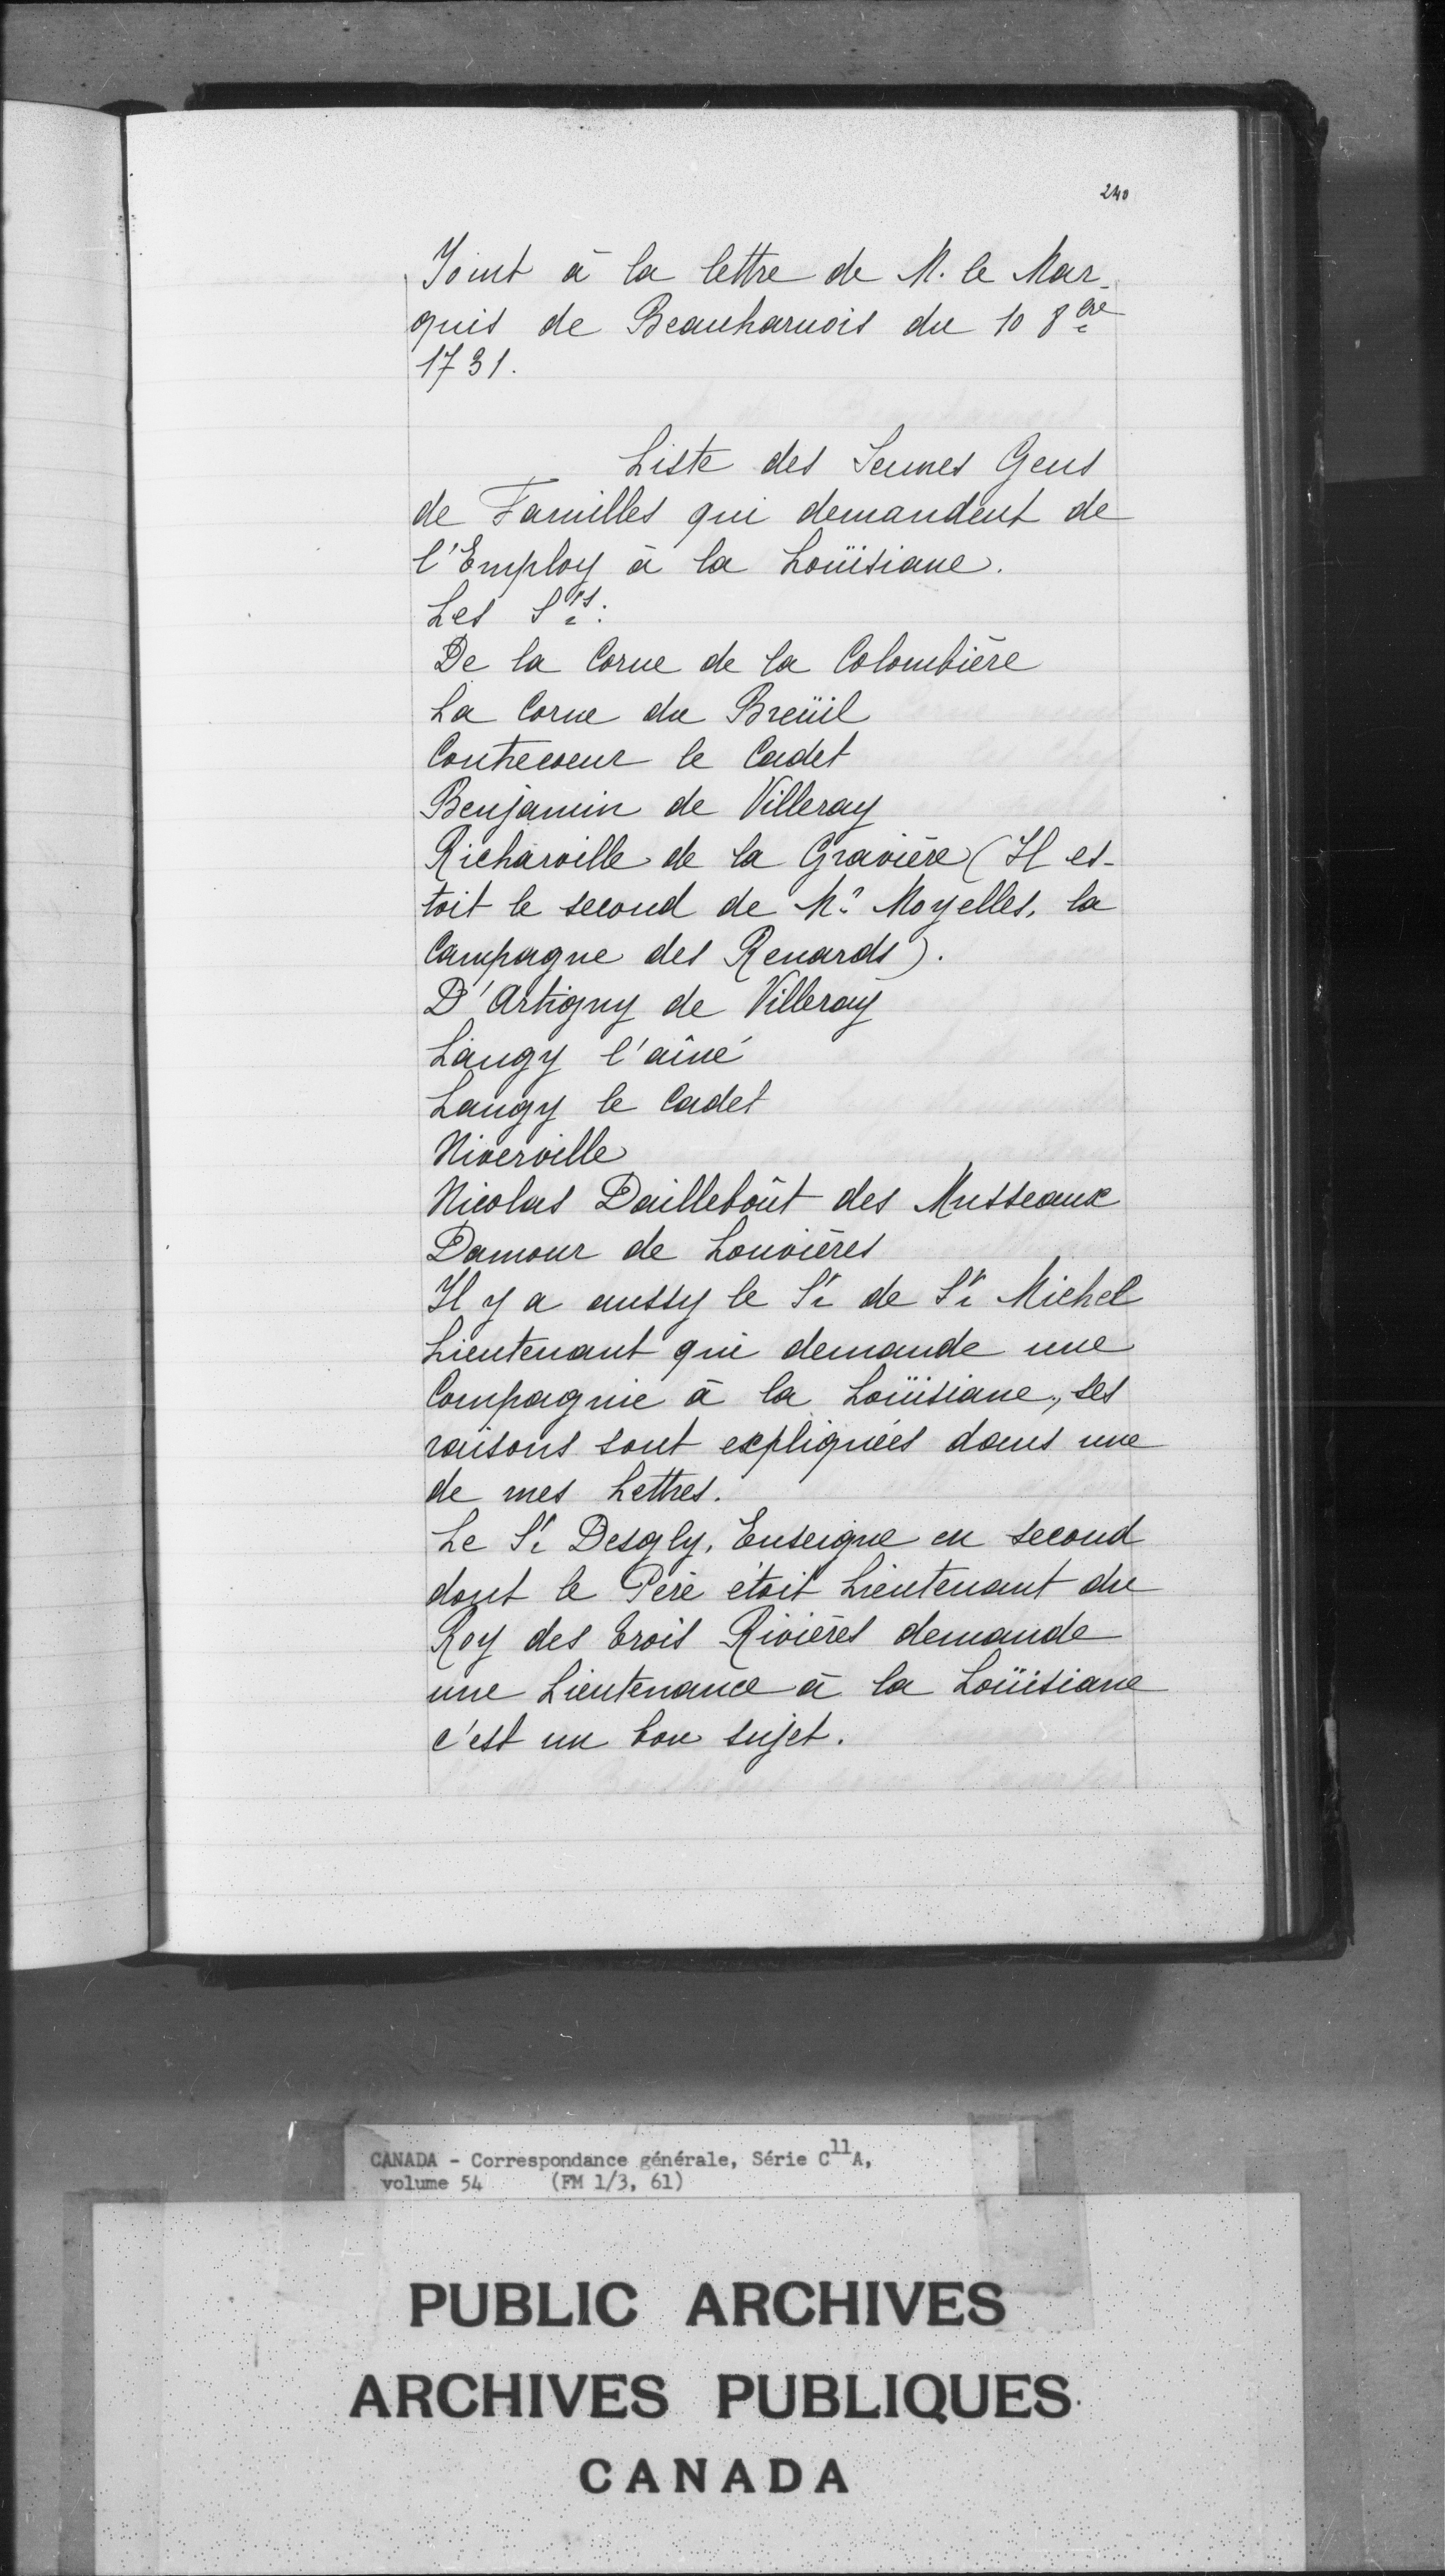 240
Joint à la lettre de M. le Mar-
quis de Beauharnois du 10 8bre
1731.
Liste des Jeunes Gens
de Familles qui demandent de
l'Employ à la Loüisiane.
Les Srs.
De la Corne de la Colombière
La Corne du Breüil
Contrecoeur le Cadet
Benjamin de Villeray
Richarville de la Gravière (Il es-
toit le second de Mr Moyelles, la
Campagne des Renards).
D'Artigny de Villeray
Langy l'aîné
Langy le Cadet
Niverville
Nicolas Dailleboût des Musseaux
Damour de Louvières
Il y a aussy le Sr de St Michel
Lieutenant qui demande une
Compagnie à la Loüisiane, ses
raisons sont expliquées dans une
de mes Lettres.
Le Sr Desgly, Enseigne en second
dont le Père étoit Lieutenant du
Roy des trois Rivières demande
une Lieutenance à la Loüisiane
c'est un bon sujet.
CANADA - Correspondance générale, Série C11A,
volume 54 (FM 1/3, 61)
PUBLIC ARCHIVES
ARCHIVES PUBLIQUES
CANADA